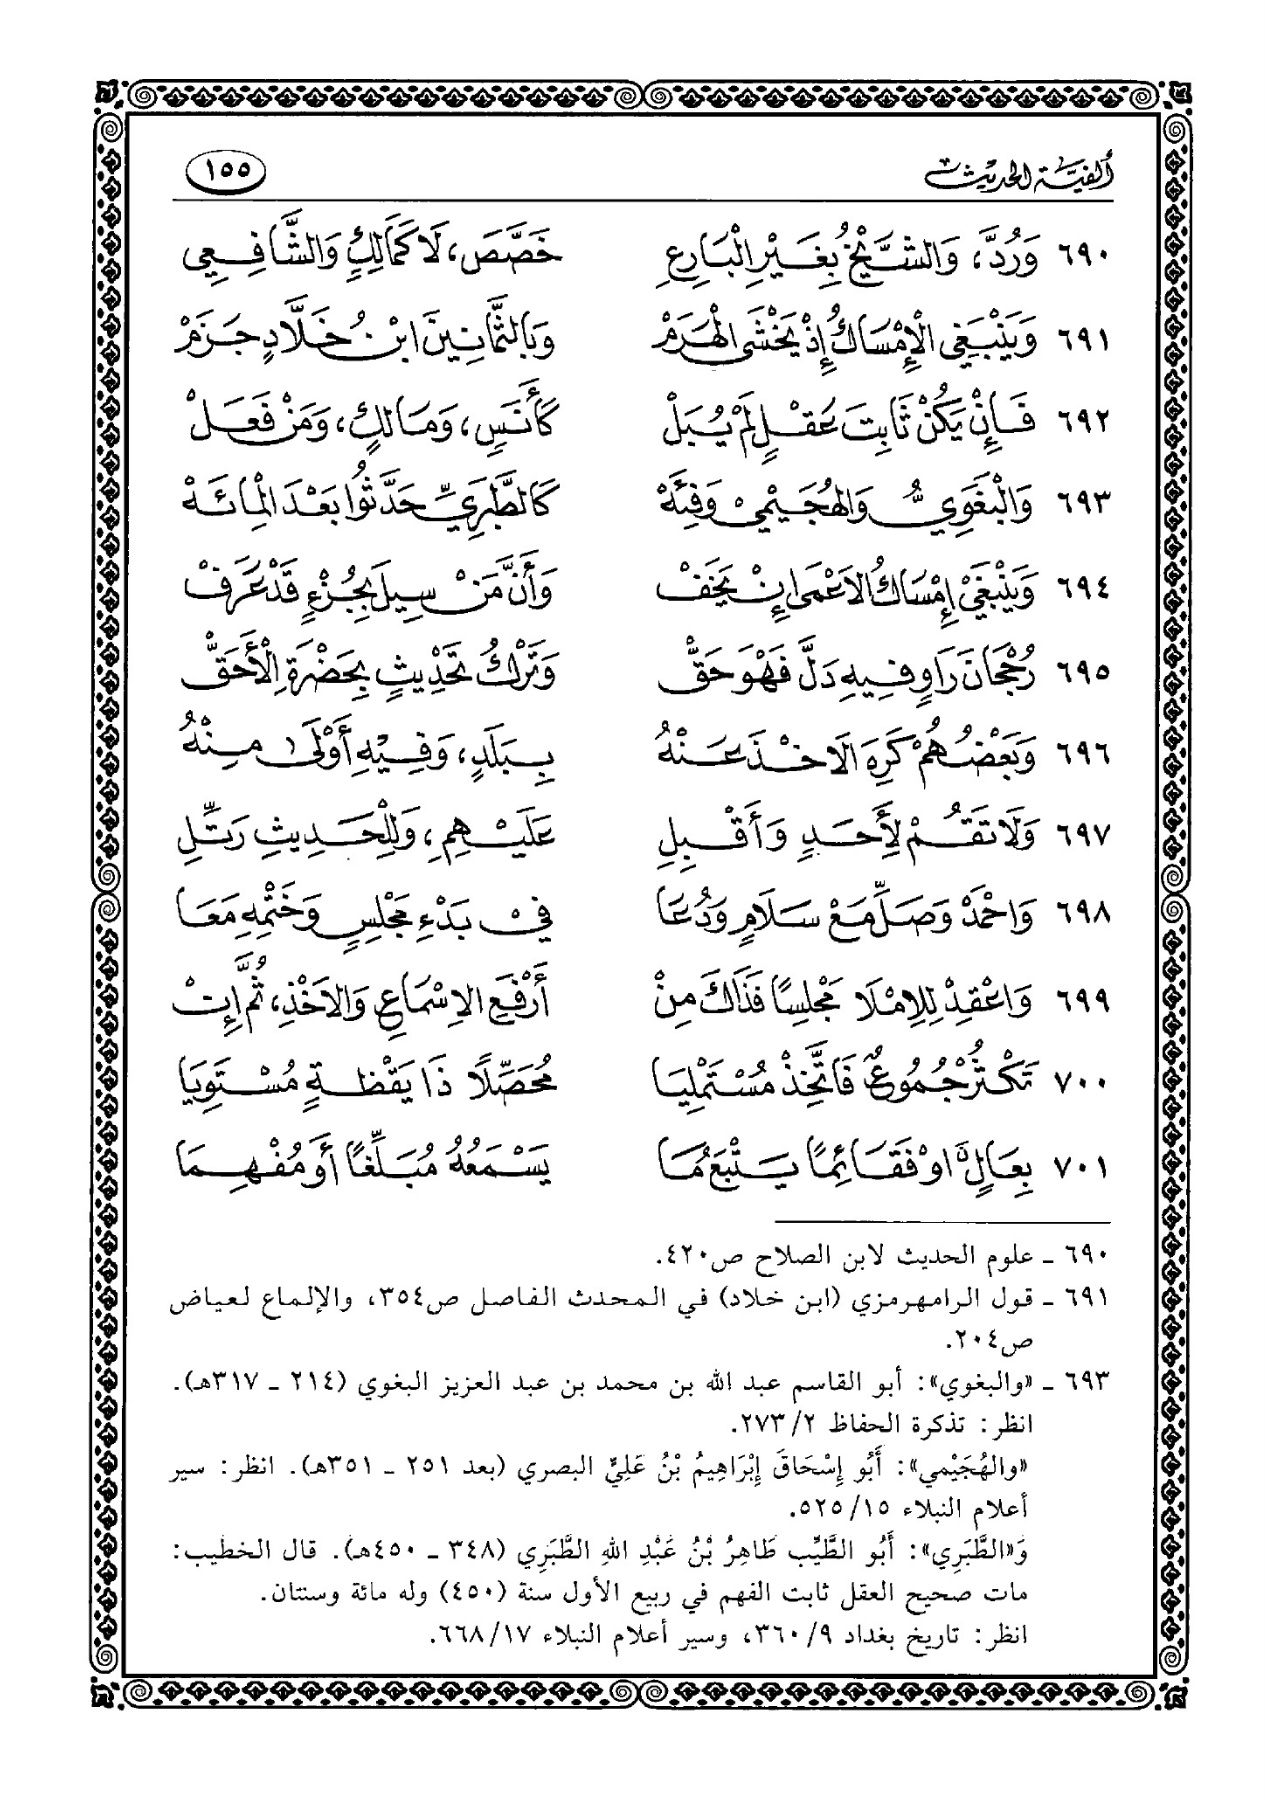 ألفية الحديث ١٥٥
٦٩٠ وَرُدَّ، وَالشَّيْخُ بِغَيْرِ الْبَارِعِ خَصَّصَ، لَا كَمَالِكٍ وَالشَّافِعِي
٦٩١ وَيَنْبَغِي الْإِمْسَاكُ إِذْ يَخْشَى الْهَرَمْ وَبِالثَّمَانِينَ ابْنُ خَلَّادٍ جَزَمْ
٦٩٢ فَإِنْ يَكُنْ ثَابِتَ عَقْلٍ لَمْ يُبَلْ كَأَنَسٍ، وَمَالِكٍ، وَمَنْ فَعَلْ
٦٩٣ وَالْبَغَوِيُّ وَالْهُجَيْمِيْ وَفِئَهْ كَالطَّبَرِيِّ حَدَّثُوا بَعْدَ الْمِائَهْ
٦٩٤ وَيَنْبَغِيْ إِمْسَاكُ الَاعْمَى إِنْ يَخَفْ وَأَنَّ مَنْ سِيلَ بِجُزْءٍ قَدْ عَرَفْ
٦٩٥ رُجْحَانَ رَاوٍ فِيهِ دَلَّ فَهْوَ حَقّْ وَتَرْكُ تَحْدِيثٍ بِحَضْرَةِ الْأَحَقّْ
٦٩٦ وَبَعْضُهُمْ كَرِهَ الَاخْذَ عَنْهُ بِبَلَدٍ، وَفِيهِ أَوْلَى مِنْهُ
٦٩٧ وَلَا تَقُمْ لِأَحَدٍ وَأَقْبِلِ عَلَيْهِمِ، وَلِلْحَدِيثِ رَتِّلِ
٦٩٨ وَاحْمَدْ وَصَلِّ مَعْ سَلَامٍ وَدُعَا فِيْ بَدْءِ مَجْلِسٍ وَخَتْمِهِ مَعَا
٦٩٩ وَاعْقِدْ لِلِامْلَا مَجْلِسًا فَذَاكَ مِنْ أَرْفَعِ الِاسْمَاعِ وَالَاخْذِ، ثُمَّ إِنْ
٧٠٠ تَكْثُرْ جُمُوعٌ فَاتَّخِذْ مُسْتَمْلِيَا مُحَصِّلًا ذَا يَقْظَةٍ مُسْتَوِيَا
٧٠١ بِعَالٍ اوْ فَقَائِمًا يَتْبَعُ مَا يَسْمَعُهُ مُبَلِّغًا أَوْ مُفْهِمَا
٦٩٠ ـ علوم الحديث لابن الصلاح ص٤٢٠.
٦٩١ ـ قول الرامهرمزي (ابن خلاد) في المحدث الفاصل ص٣٥٤، والإلماع لعياض
ص٢٠٤.
٦٩٣ ـ «والبغوي»: أبو القاسم عبد الله بن محمد بن عبد العزيز البغوي (٢١٤ ـ ٣١٧هـ).
انظر: تذكرة الحفاظ ٢/ ٢٧٣.
«والهُجَيْمي»: أَبُو إِسْحَاقَ إِبْرَاهِيمُ بْنُ عَلِيٍّ البصري (بعد ٢٥١ ـ ٣٥١هـ). انظر: سير
أعلام النبلاء ١٥/ ٥٢٥.
وَ«الطَّبَرِي»: أَبُو الطَّيِّب طَاهِرُ بْنُ عَبْدِ اللهِ الطَّبَرِي (٣٤٨ ـ ٤٥٠هـ). قال الخطيب:
مات صحيح العقل ثابت الفهم في ربيع الأول سنة (٤٥٠) وله مائة وسنتان.
انظر: تاريخ بغداد ٩/ ٣٦٠، وسير أعلام النبلاء ١٧/ ٦٦٨.